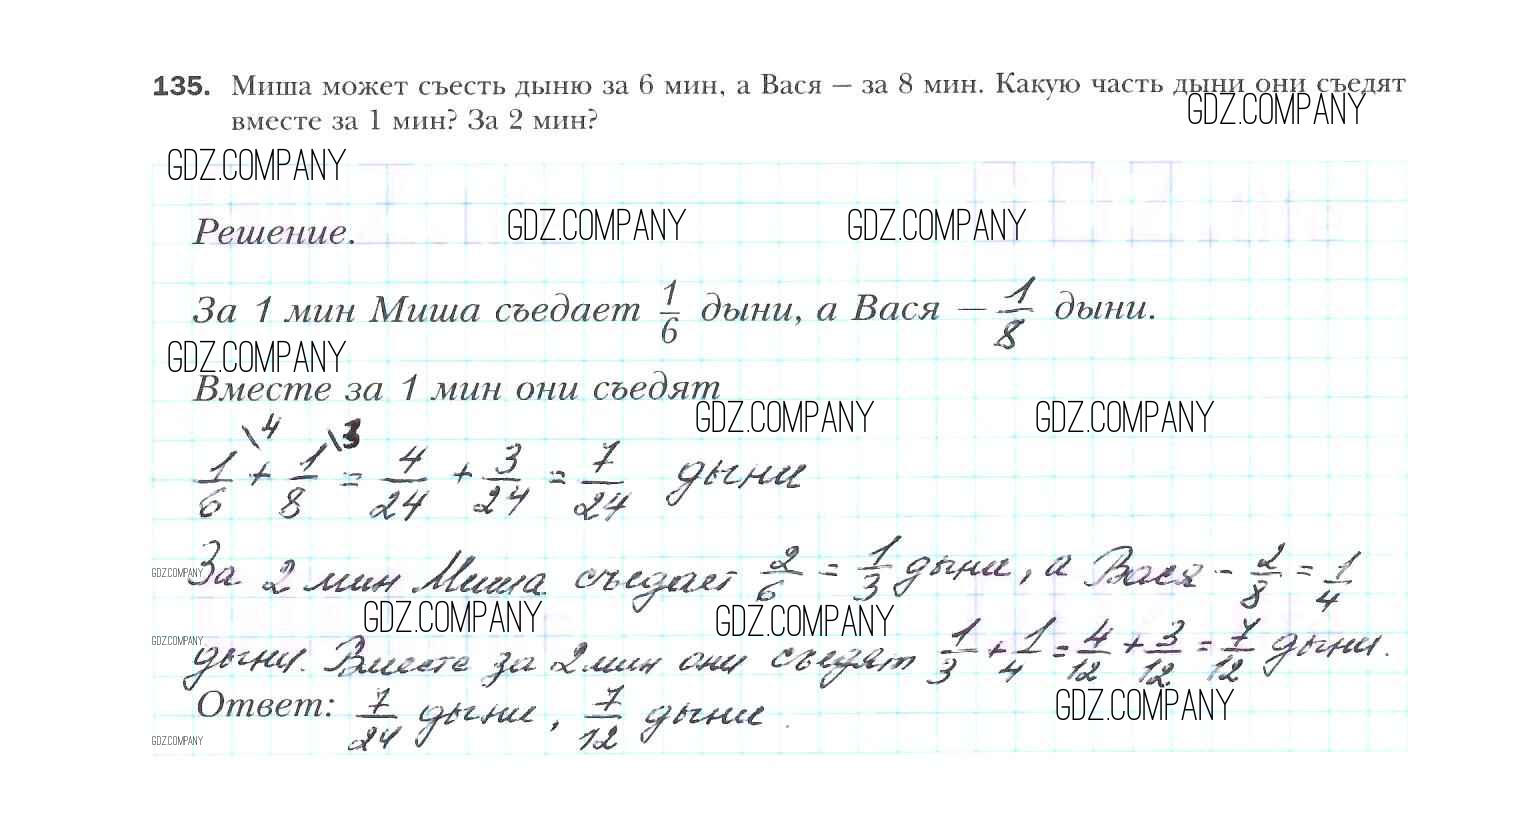 135. Миша может съесть дыню за 6 мин, а Вася — за 8 мин. Какую часть дыни они съедят
GDZ.COMPANY
вместе за 1 мин? За 2 мин?
GDZ.COMPANY
Решение.
GDZ.COMPANY GDZ.COMPANY
За 1 мин Миша съедает 1/6 дыни, а Вася — 1/8 дыни.
GDZ.COMPANY
Вместе за 1 мин они съедят
GDZ.COMPANY GDZ.COMPANY
1/6 \4 + 1/8 \3 = 4/24 + 3/24 = 7/24 дыни
GDZ.COMPANY
За 2 мин Миша съедает 2/6 = 1/3 дыни, а Вася - 2/8 = 1/4
GDZ.COMPANY GDZ.COMPANY
GDZ.COMPANY
дыни. Вместе за 2 мин они съедят 1/3 + 1/4 = 4/12 + 3/12 = 7/12 дыни.
Ответ: 7/24 дыни, 7/12 дыни.
GDZ.COMPANY
GDZ.COMPANY